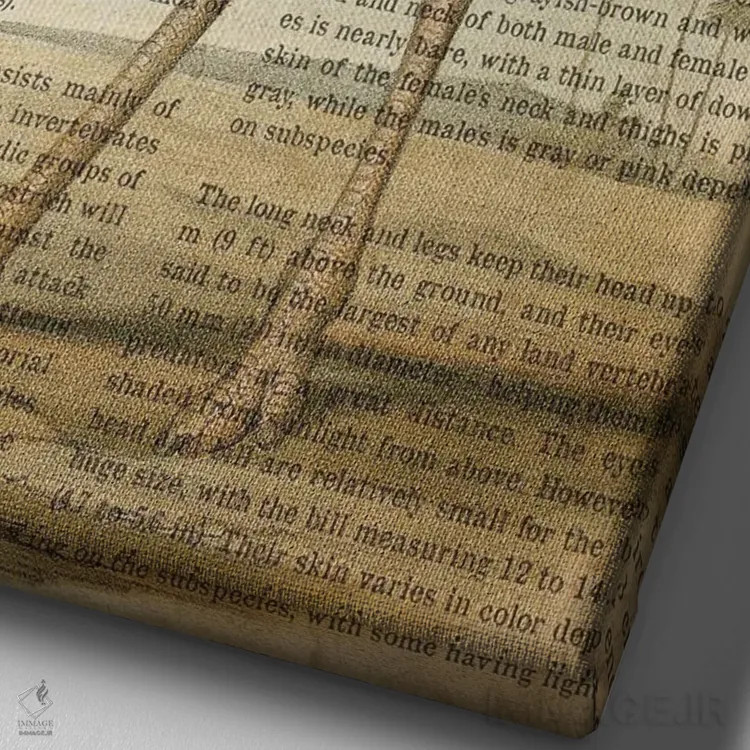 ish-brown and w
and neck of both male and female
es is nearly bare, with a thin layer of dow
skin of the female's neck and thighs is p
gray, while the male's is gray or pink depe
on subspecies.
sists mainly of
invertebrates
dic groups of
ostrich will
the
attack
orial
The long neck and legs keep their head up to
m (9 ft) above the ground, and their eyes
said to be the largest of any land vertebra
50 mm in diameter helping them
predator at great distance. The eyes
shaded from sunlight from above. However
head and bill are relatively small for the bi
huge size, with the bill measuring 12 to 14
(4.7 to 5.6 in). Their skin varies in color dep
ing on the subspecies, with some having ligh
IMMAGE
IMMAGE.IR